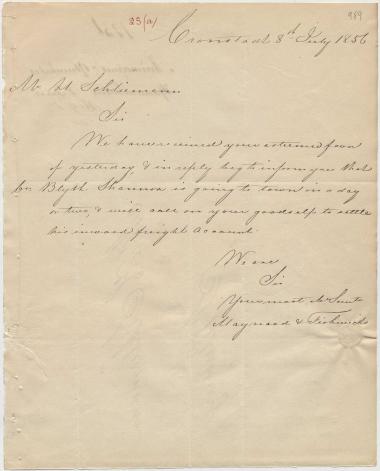 23(a)
989
Cronstadt 8th July 1856
Mr H Schliemann
Sir
We have received your esteemed favor
of yesterday, & in reply beg to inform you that
Cpn Blyth Shannon is going to town in a day
or two, & will call on your goodself to settle
his inward freight account.
We are
Sir
Your most Ob Servts
Maynard & Fishwick